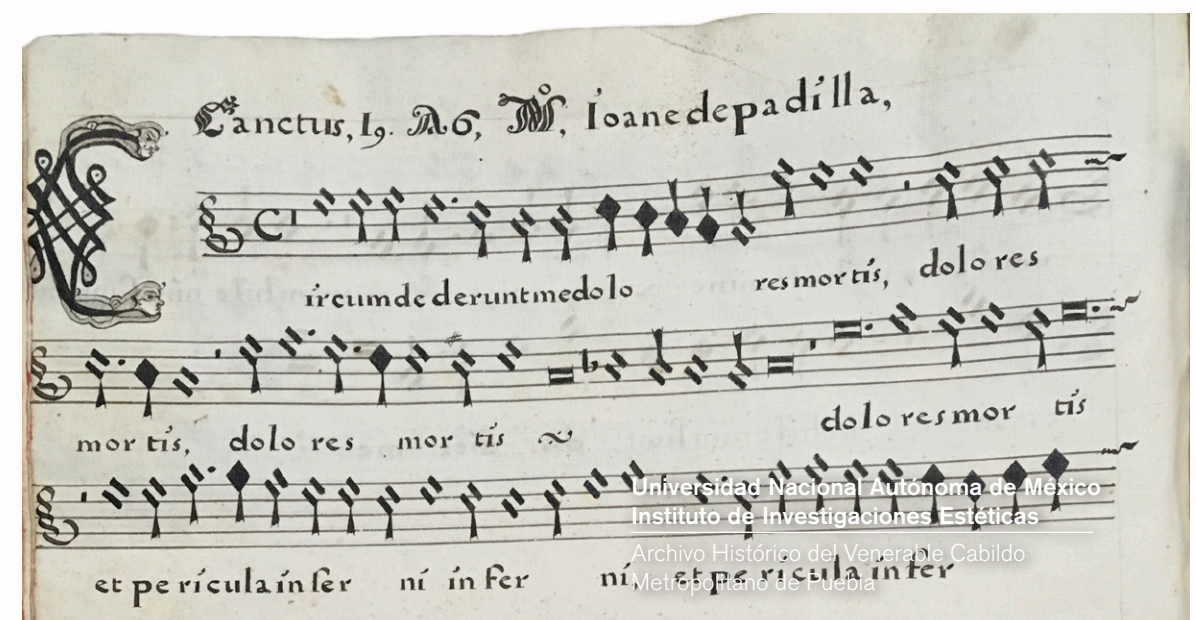 Cantus, I9. A6, Mº, Ioane de padilla,
Circumdederunt me dolo res mor tis, dolo res
mor tis, dolo res mor tis dolo res mor tis
et pe rícula in fer ní in fer ní, et pe rícula in fer
Universidad Nacional Autónoma de México
Instituto de Investigaciones Estéticas
Archivo Histórico del Venerable Cabildo
Metropolitano de Puebla